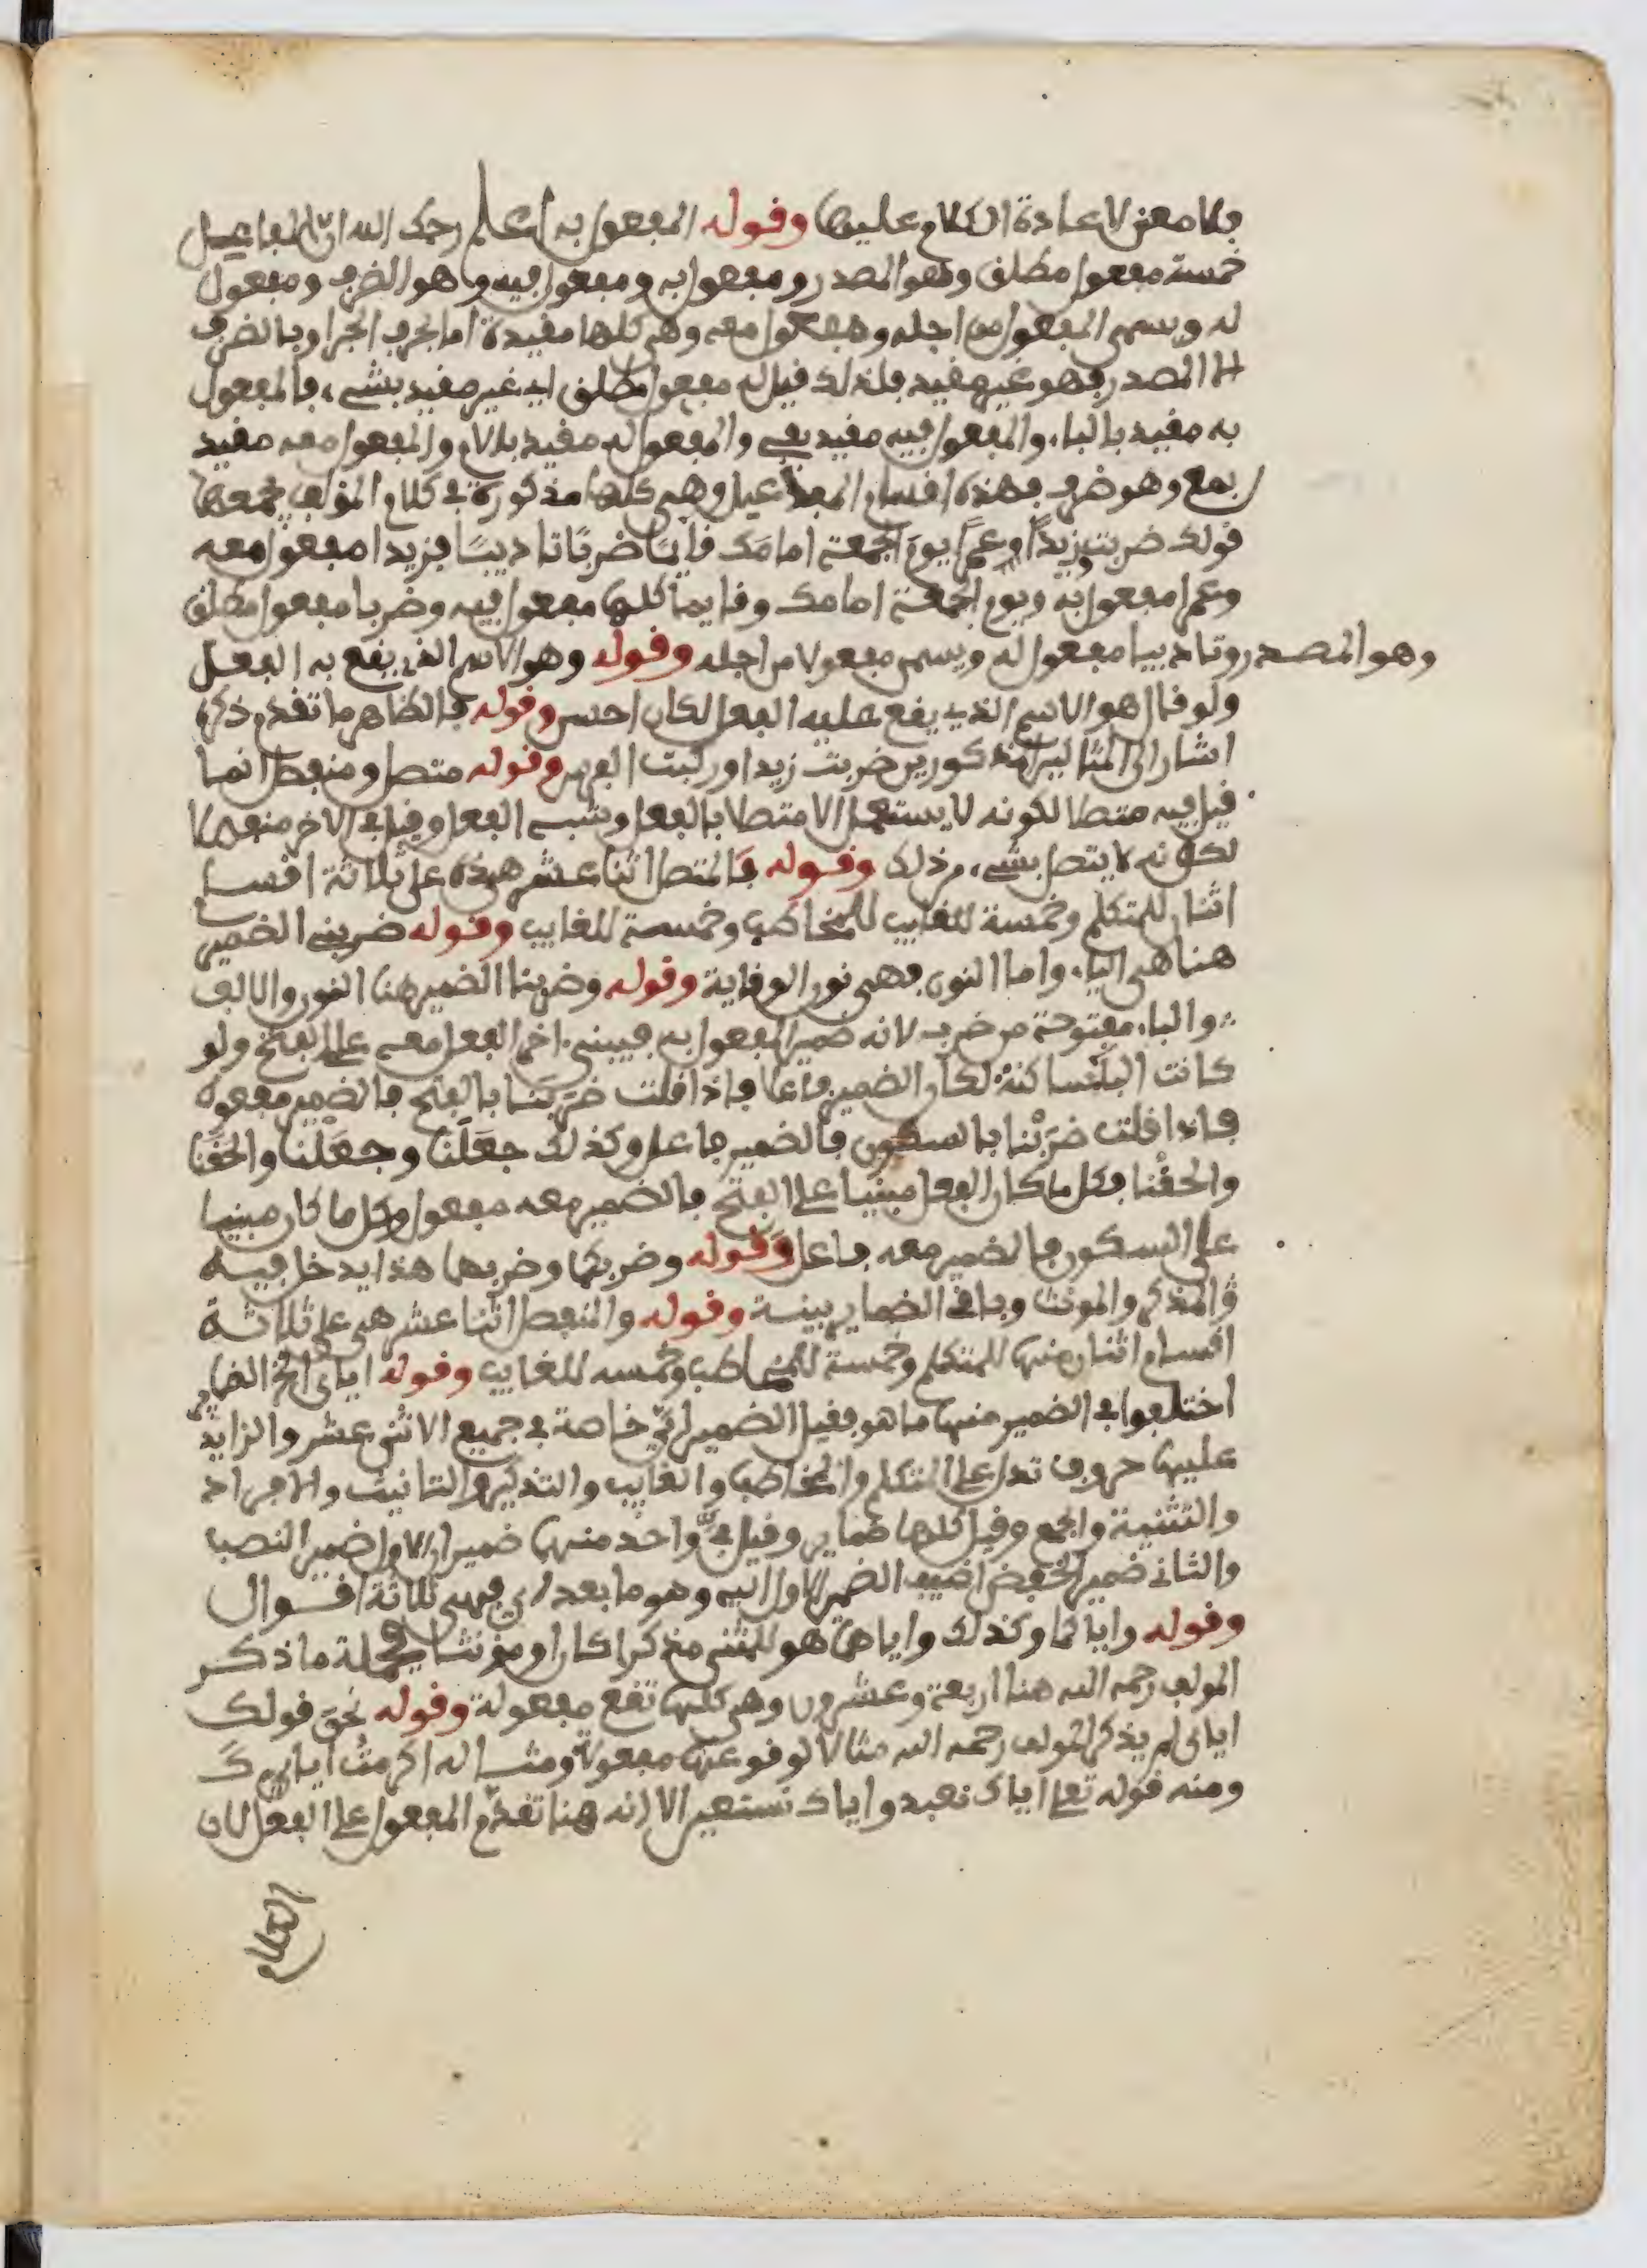 فلا معنى لاعادة الكلام عليها وقوله المفعول به اعلم رحمك الله ان المفاعيل
خمسة مفعول مطلق وهو المصدر ومفعول به ومفعول فيه وهو الضرف ومفعول
له ويسمى المفعول من اجله ومفعول معه وهي كلها مقيدة اما بحرف الجر او بالضرف
الا المصدر فهو غير مقيد فلذلك قيل له مفعول مطلق اي غير مقيد بشيء فالمفعول
به مقيد بالباء والمفعول فيه مقيد بفي والمفعول له مقيد باللام والمفعول معه مقيد
بمع وهو ضرف فهذه اقسام المفاعيل وهي كلها مذكورة في كلام المؤلف يجمعها
قولك ضربت وزيدًا عمرًا يومَ الجمعة امامَك قائمًا ضربًا تاديبًا فزيدا مفعول معه
وعمرا مفعول به ويوم الجمعة امامك وقايما كلها مفعول فيه وضربا مفعول مطلق
وهو المصدر وتاديبا مفعول له ويسمى مفعولا من اجله وقوله وهو الاسم الذي يقع به الفعل
ولو قال هو الاسم الذي يقع عليه الفعل لكان احسن وقوله فالظاهر ما تقدم ذكره
اشار الى المثالين المذكورين ضربت زيدا وركبت الفرس وقوله متصل ومنفصل انما
قيل فيه متصلا لكونه لا يستعمل الا متصلا بالفعل وشبه الفعل وقيل في الاخر منفصلا
لكونه لا يتصل بشيء من ذلك وقوله فالمتصل اثنا عشر هذه على ثلاثة اقسام
اثنان للمتكلم وخمسة للمخاطب وخمسة للغايب وقوله ضربني الضمير
هنا هي الياء واما النون فهي نون الوقاية وقوله وضربنا الضمير هنا النون والالف
والباء مفتوحة من ضرب لانه ضمير المفعول به فيبنى اخر الفعل معه على الفتح ولو
كانت الباء ساكنة لكان الضمير فاعلا فاذا قلت ضرَبَنا بالفتح فالضمير مفعول
فاذا قلت ضرَبْنا بالسكون فالضمير فاعل وكذلك جعَلَنا وجعَلْنا والحقَنا
والحقْنا فكل ما كان الفعل مبنيا على الفتح فالضمير معه مفعول وكل ما كان مبنيا
على السكون فالضمير معه فاعل وقوله وضربكما وضربهما هذا يدخل فيه
المذكر والمونث وباقي الضماير بينة وقوله والمنفصل اثنا عشر هي على ثلاثة
اقسام اثنان منها للمتكلم وخمسة للمخاطب وخمسة للغايب وقوله اياي الخ الضماير
اختلفوا في الضمير منها ما هو فقيل الضمير ايّ خاصة في جميع الاثنى عشر والزايد
عليها حروف تدل على المتكلم والمخاطب والغايب والتذكير والتانيث والافراد
والتثنية والجمع وقيل كلها ضماير وقيل في واحد منها ضميران الاول ضمير النصب
والثاني ضمير الخفض اضيف الضمير الاول اليه وهو ما بعد اي فهي ثلاثة اقوال
وقوله واياكما وكذلك واياهما هو للمثنى مذكرا كان او مؤنثا فجملة ما ذكر
المولف رحمه الله هنا اربعة وعشرون وهي كلها تقع مفعولة وقوله نحو قولك
اياي لم يذكر المولف رحمه الله مثالا لوقوعها مفعولا ومثاله اكرمتُ اياك
ومنه قوله تعلى اياك نعبد واياك نستعين الا انه هنا تقدم المفعول على الفعل لان